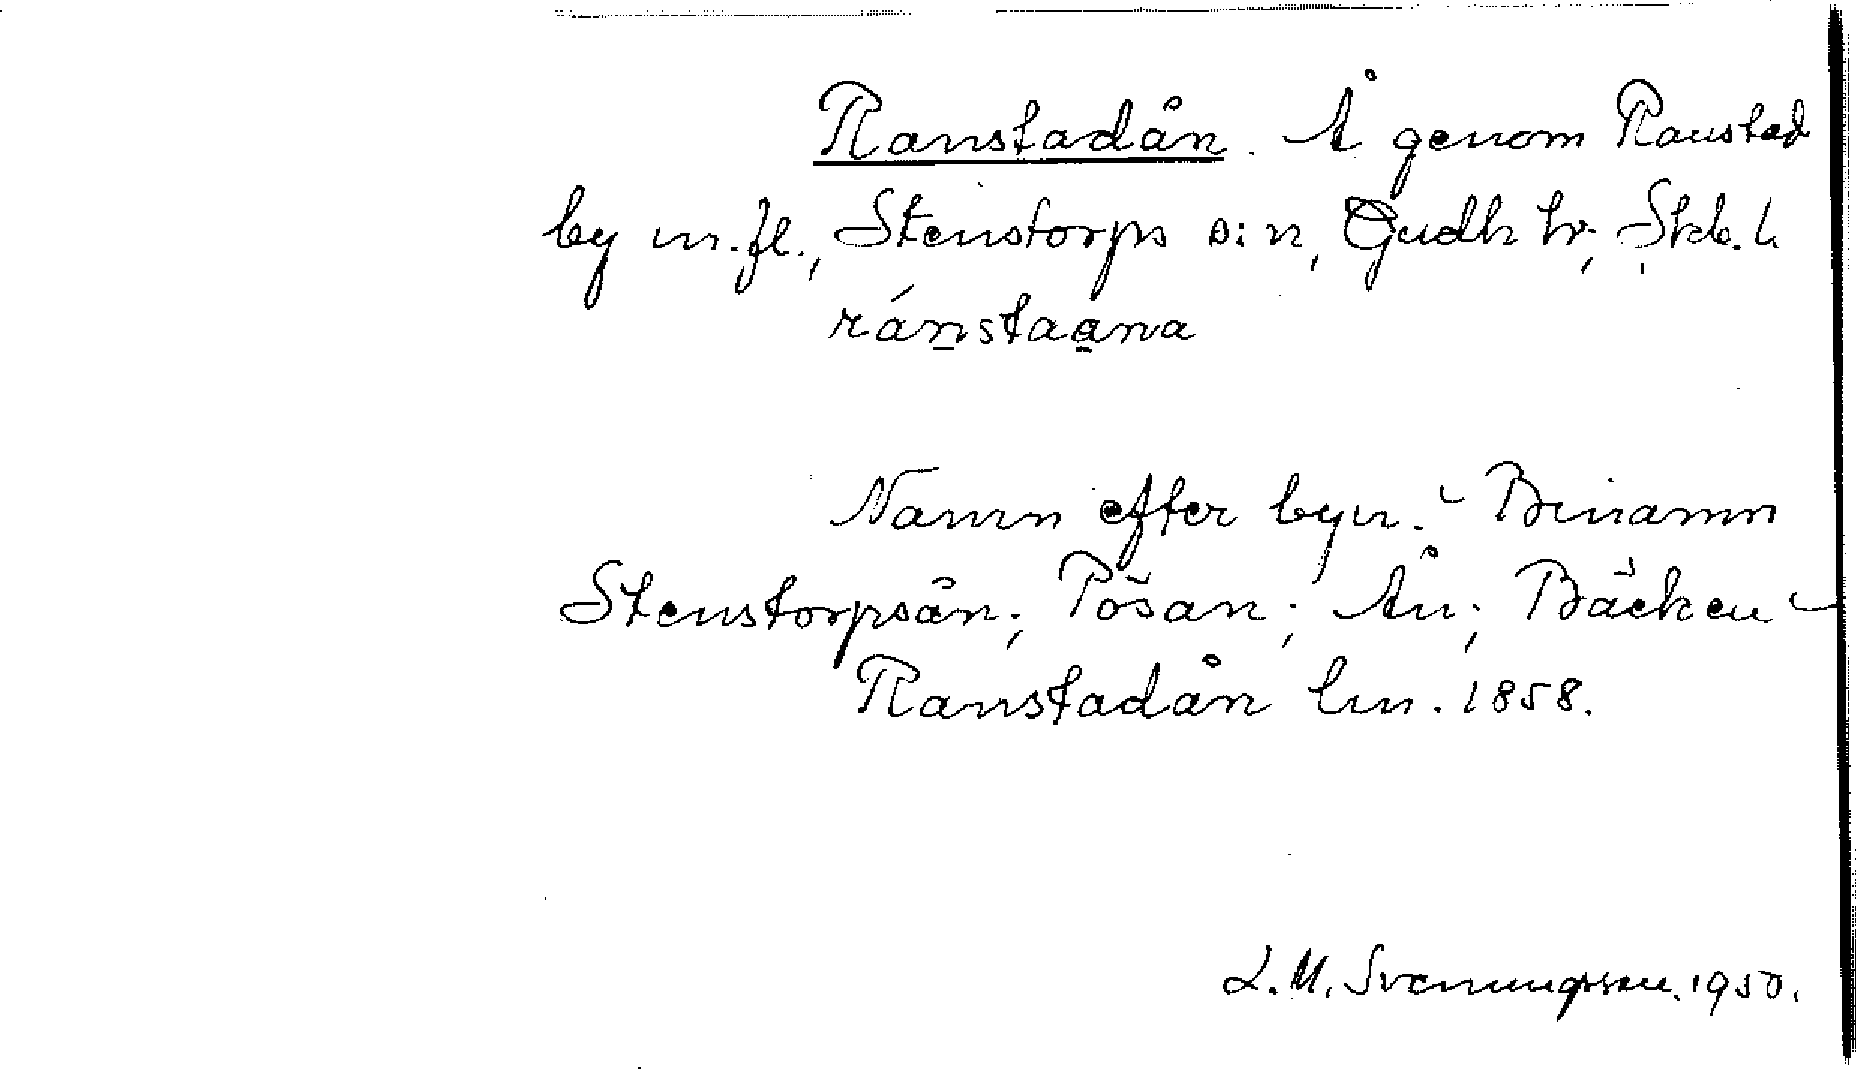 Ranstadån. Å genom Ranstad
by m.fl., Stenstorps s:n, Gudh hr, Skb. l
ránstaana
Namn efter byn. - Binamn
Stenstorpsån; Pösan; Ån; Bäcken -
Ranstadån lm. 1858.
L.M. Svenungsson. 1950.